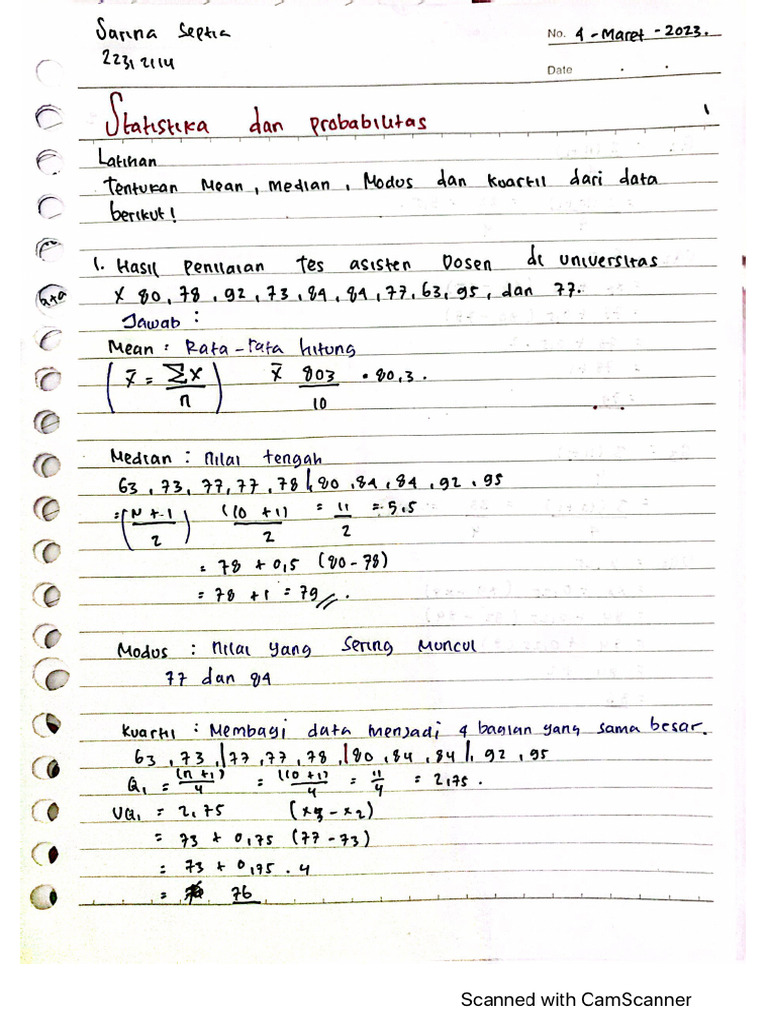 Sarina Septia
No. 4 - Maret - 2023.
22312114
Date . .
Statistika dan probabilitas
1
Latihan
Tentukan Mean, median, Modus dan Kuartil dari data
berikut!
1. Hasil penilaian tes asisten Dosen di universitas
X 80, 78, 92, 73, 84, 84, 77, 63, 95, dan 77.
Jawab :
Mean : Rata-rata hitung
( x̄ = ∑x / n ) x̄ 803 / 10 = 80,3.
Median : nilai tengah
63, 73, 77, 77, 78 | 80, 84, 84, 92, 95
= ( N + 1 / 2 ) (10 + 1) / 2 = 11 / 2 = 5.5
= 78 + 0,5 (80 - 78)
= 78 + 1 = 79 //.
Modus : nilai yang sering muncul
77 dan 84
Kuartil : Membagi data menjadi 4 bagian yang sama besar.
63, 73, | 77, 77, 78, | 80, 84, 84 |, 92, 95
Q₁ = (n + 1) / 4 = (10 + 1) / 4 = 11 / 4 = 2,75.
VQ₁ = 2,75 (x3 - x2)
= 73 + 0,75 (77 - 73)
= 73 + 0,75 . 4
= 76
Scanned with CamScanner